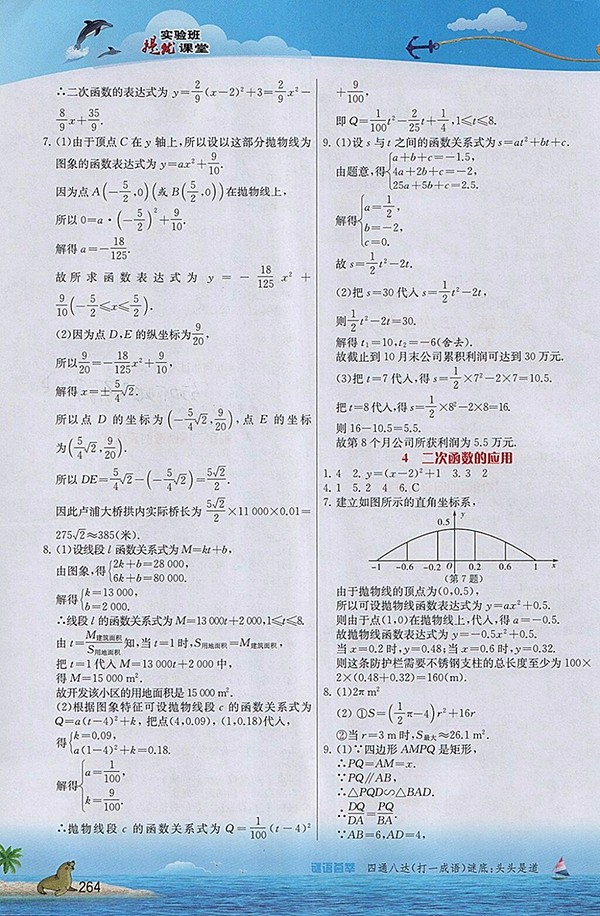 实验班
提优课堂
∴二次函数的表达式为 y=2/9(x-2)²+3=2/9x²-
8/9x+35/9.
7. (1)由于顶点 C 在 y 轴上,所以设以这部分抛物线为
图象的函数表达式为 y=ax²+9/10.
因为点 A(-5/2,0)(或 B(5/2,0))在抛物线上,
所以 0=a·(-5/2)²+9/10.
解得 a=-18/125.
故所求函数表达式为 y=-18/125x²+
9/10(-5/2≤x≤5/2).
(2)因为点 D,E 的纵坐标为9/20,
所以9/20=-18/125x²+9/10,
解得 x=±5/4√2.
所以点 D 的坐标为(-5/4√2,9/20),点 E 的坐标
为(5/4√2,9/20).
所以 DE=5/4√2-(-5/4√2)=5√2/2.
因此卢浦大桥拱内实际桥长为5√2/2×11 000×0.01=
275√2≈385(米).
8. (1)设线段 l 函数关系式为 M=kt+b,
由图象,得{2k+b=28 000,
6k+b=80 000.
解得{k=13 000,
b=2 000.
∴线段 l 的函数关系式为 M=13 000t+2 000,1≤t≤8.
由 t=M建筑面积/S用地面积知,当 t=1 时,S用地面积=M建筑面积,
把 t=1 代入 M=13 000t+2 000 中,
得 M=15 000 m².
故开发该小区的用地面积是 15 000 m².
(2)根据图象特征可设抛物线段 c 的函数关系式为
Q=a(t-4)²+k,把点(4,0.09),(1,0.18)代入,
得{k=0.09,
a(1-4)²+k=0.18.
解得{a=1/100,
k=9/100.
∴抛物线段 c 的函数关系式为 Q=1/100(t-4)²
+9/100,
即 Q=1/100t²-2/25t+1/4,1≤t≤8.
9. (1)设 s 与 t 之间的函数关系式为 s=at²+bt+c.
由题意,得{a+b+c=-1.5,
4a+2b+c=-2,
25a+5b+c=2.5.
解得{a=1/2,
b=-2,
c=0.
故 s=1/2t²-2t.
(2)把 s=30 代入 s=1/2t²-2t,
则1/2t²-2t=30.
解得 t₁=10,t₂=-6(舍去).
故截止到 10 月末公司累积利润可达到 30 万元.
(3)把 t=7 代入,得 s=1/2×7²-2×7=10.5.
把 t=8 代入,得 s=1/2×8²-2×8=16.
则 16-10.5=5.5.
故第 8 个月公司所获利润为 5.5 万元.
4 二次函数的应用
1. 4 2. y=(x-2)²+1 3. 3 2
4. 1 5. 2 4 6. C
7. 建立如图所示的直角坐标系,
y
0.5
-1 -0.6 -0.2 O 0.2 0.6 1 x
(第 7 题)
由于抛物线的顶点为(0,0.5),
所以可设抛物线函数表达式为 y=ax²+0.5.
则由于点(1,0)在抛物线上,代入,得 a=-0.5.
故抛物线函数表达式为 y=-0.5x²+0.5.
当 x=0.2 时,y=0.48;当 x=0.6 时,y=0.32.
则这条防护栏需要不锈钢支柱的总长度至少为 100×
2×(0.48+0.32)=160(m).
8. (1)2π m²
(2) ①S=(1/2π-4)r²+16r
②当 r=3 m 时,S最大≈26.1 m².
9. (1)∵四边形 AMPQ 是矩形,
∴PQ=AM=x.
∵PQ∥AB,
∴△PQD∽△BAD.
∴DQ/DA=PQ/BA.
∵AB=6,AD=4,
264
谜语荟萃 四通八达(打一成语)谜底:头头是道